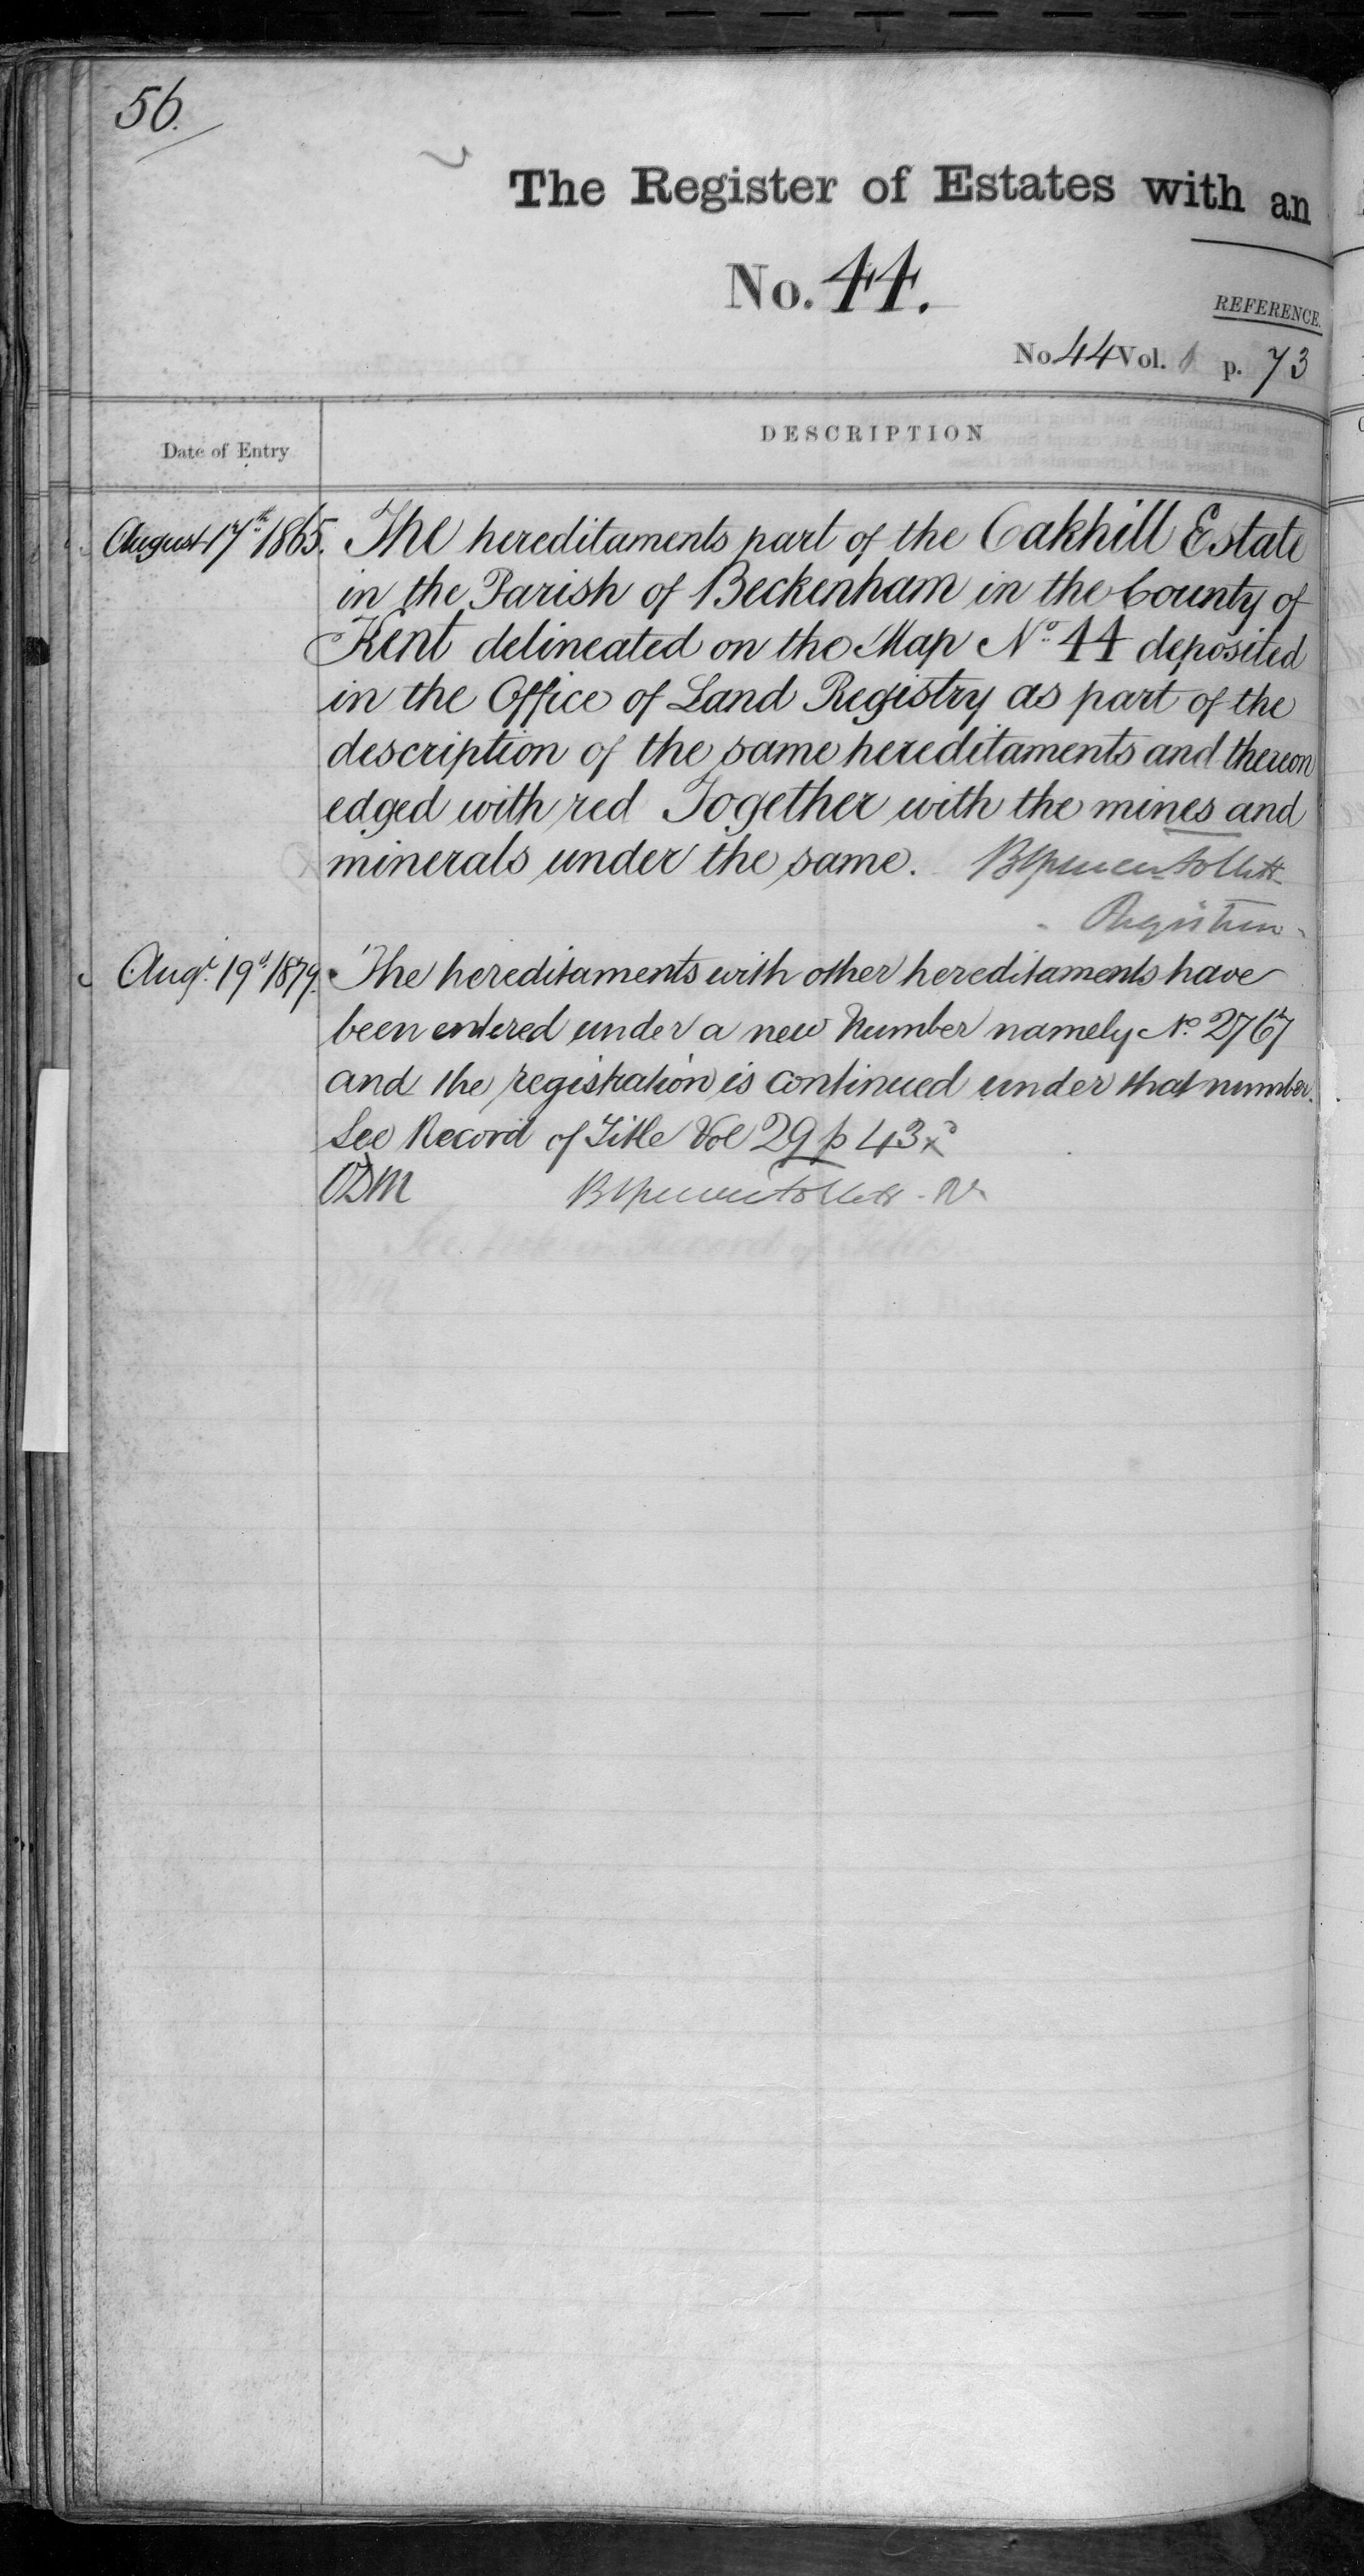 56.
The Register of Estates with an
No. 44.
REFERENCE.
No 44 Vol. 1 p. 73
Date of Entry
DESCRIPTION
August 17th 1865. The hereditaments part of the Oakhill Estate
in the Parish of Beckenham in the County of
Kent delineated on the Map No. 44 deposited
in the Office of Land Registry as part of the
description of the same hereditaments and thereon
edged with red Together with the mines and
minerals under the same. Brent Spencer Follett
Registrar
Augt. 19th 1879. The hereditaments with other hereditaments have
been entered under a new Number namely No. 2767
and the registration is continued under that number.
See Record of Title Vol 29 p 43
ODM